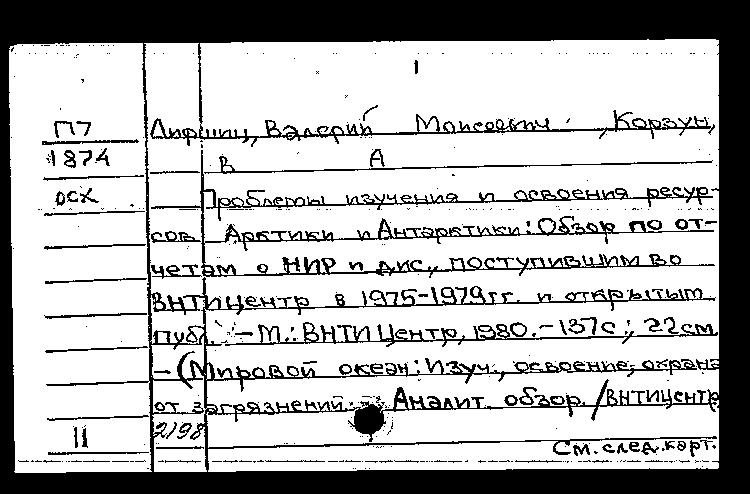 I
П7 Лифшиц, Валерий Моисеевич, Корзун,
1874 В А
осх Проблемы изучения и освоения ресур-
сов Арктики и Антарктики: Обзор по от-
четам о НИР и дис., поступившим во
ВНТИЦентр в 1975-1979 гг. и открытым
публ. - М.: ВНТИЦентр, 1980. - 137с.; 22см
- (Мировой океан: Изуч., освоение, охрана
от загрязнений: Аналит. обзор. / ВНТИЦентр
II 2198
См. след. карт.